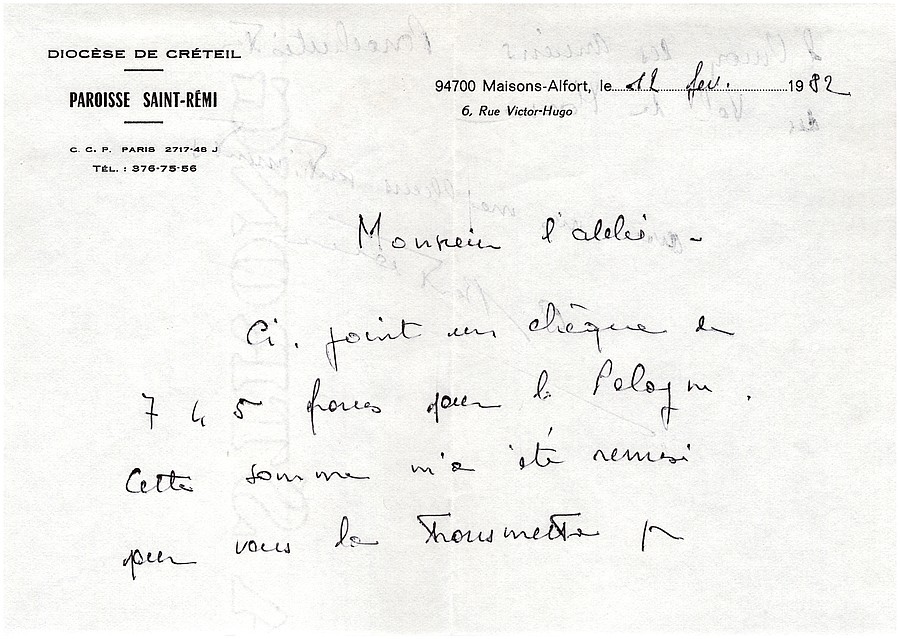 DIOCÈSE DE CRÉTEIL
PAROISSE SAINT-RÉMI
C. C. P. PARIS 2717-48 J
TÉL. : 376-75-56
94700 Maisons-Alfort, le 12 fev. 1982
6, Rue Victor-Hugo
Monsieur l'abbé -
Ci. joint un chèque de
745 francs pour la Pologne.
Cette somme m'a été remise
pour vous la transmettre